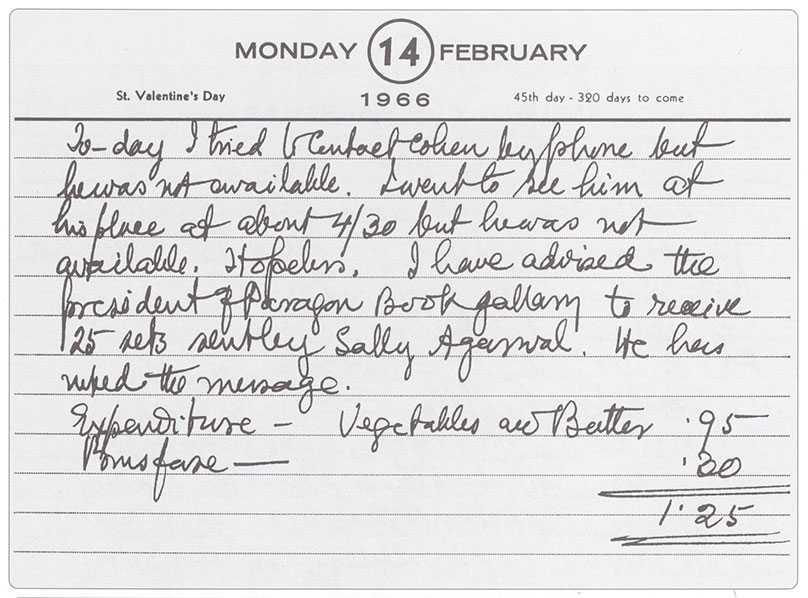 MONDAY 14 FEBRUARY
St. Valentine's Day 1966 45th day - 320 days to come
To-day I tried to Contact Cohen by phone but
he was not available. I went to see him at
his place at about 4/30 but he was not
available. Hopeless. I have advised the
president of Paragon Book gallary to receive
25 sets sent by Sally Agarwal. He has
noted the message.
Expenditure - Vegetables and Butter .95
fare — .30
1.25